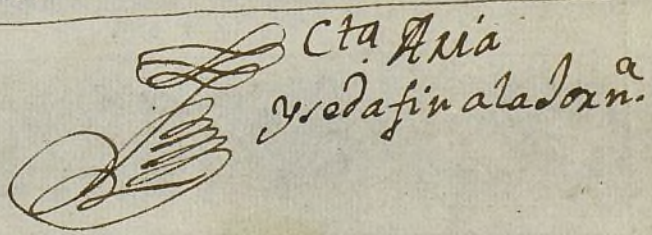 Cta Aria
y se da fin a la Jorn.a